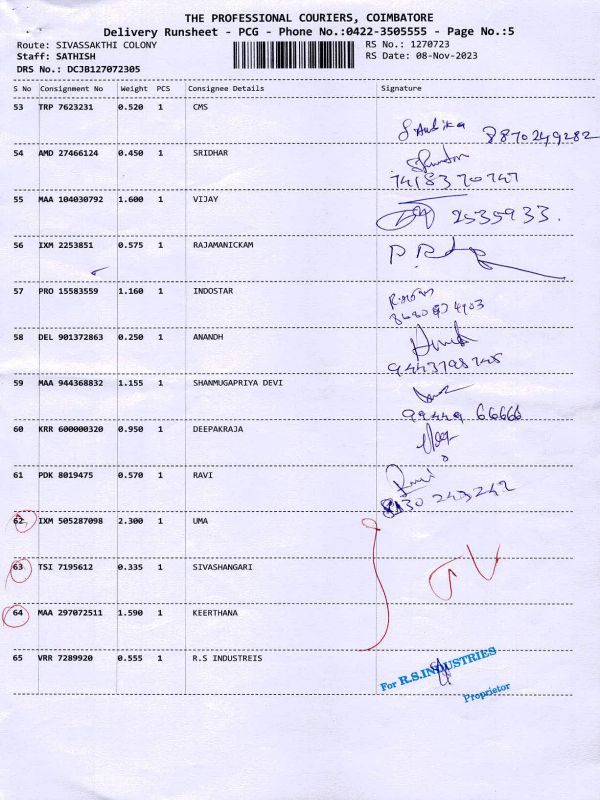 THE PROFESSIONAL COURIERS, COIMBATORE
Delivery Runsheet - PCG - Phone No.:0422-3505555 - Page No.:5
Route: SIVASSAKTHI COLONY RS No.: 1270723
Staff: SATHISH RS Date: 08-Nov-2023
DRS No.: DCJB127072305
S No Consignment No Weight PCS Consignee Details Signature
53 TRP 7623231 0.520 1 CMS
8870249282
54 AMD 27466124 0.450 1 SRIDHAR
7418370747
55 MAA 104030792 1.600 1 VIJAY
2535933.
56 IXM 2253851 0.575 1 RAJAMANICKAM
57 PRO 15583559 1.160 1 INDOSTAR
58 DEL 901372863 0.250 1 ANANDH
9443798745
59 MAA 944368832 1.155 1 SHANMUGAPRIYA DEVI
99449 66666
60 KRR 600000320 0.950 1 DEEPAKRAJA
61 PDK 8019475 0.570 1 RAVI
62 IXM 505287098 2.300 1 UMA
63 TSI 7195612 0.335 1 SIVASHANGARI
64 MAA 297072511 1.590 1 KEERTHANA
65 VRR 7289920 0.555 1 R.S INDUSTREIS
For R.S.INDUSTRIES
Proprietor